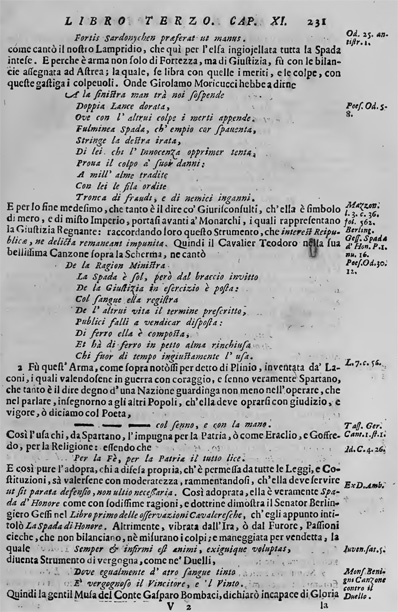 LIBRO TERZO. CAP. XI. 231
Fortis Sardonychen præferat ut manus.
Od. 25. an-
tistr. 1.
come cantò il nostro Lampridio, che quì per l'elsa ingiojellata tutta la Spada
intese. E perche è arma non solo di Fortezza, ma di Giustizia, fù con le bilan-
cie assegnata ad Astrea; la quale, se libra con quelle i meriti, e le colpe, con
queste gastiga i colpeuoli. Onde Girolamo Moricucci hebbe a dirne
A la sinistra man trà noi sospende
Doppia Lance dorata,
Poes. Od. 5-
8.
Oue con l'altrui colpe i merti appende.
Fulminea Spada, ch'empio cor spauenta,
Stringe la destra irata,
Di lei chi l'Innocenza opprimer tenta,
Proua il colpo à suoi danni:
A mill' alme tradite
Con lei le fila ordite
Tronca di fraudi, e di nemici inganni.
E per lo fine medesimo, che tanto è il dire co' Giurisconsulti, ch'ella è simbolo
di mero, e di misto Imperio, portasi avanti a' Monarchi, i quali rappresentano
la Giustizia Regnante: raccordando loro questo Strumento, che interest Reipu-
blicæ, ne delicta remaneant impunita. Quindi il Cavalier Teodoro nella sua
bellissima Canzone sopra la Scherma, ne cantò
l. 3. c. 36.
fol. 562.
Berling.
Gess. Spada
d' Hon. P. 1.
nu. 16.
Poes. Od. 30.
12.
De la Ragion Ministra
La Spada è sol, però dal braccio invitto
De la Giustizia in esercizio è posta:
Col sangue ella registra
De l'altrui vita il termine prescritto,
Publici falli a vendicar disposta:
Di ferro ella è composta,
Et hà di ferro in petto alma rinchiusa
Chi fuor di tempo ingiustamente l'usa.
2 Fù quest' Arma, come sopra notossi per detto di Plinio, inventata da' La-
coni, i quali valendosene in guerra con coraggio, e senno veramente Spartano,
che tanto è il dire degno d'una Nazione guardinga non meno nell'operare, che
nel parlare, insegnarono a gli altri Popoli, ch'ella deve oprarsi con giudizio, e
vigore, ò diciamo col Poeta,
L. 7. c. 56.
col senno, e con la mano.
Tass. Ger.
Cant. 1. st. 1.
Così l'usa chi, da Spartano, l'impugna per la Patria, ò come Eraclio, e Goffre-
do, per la Religione: essendo che
Id. C. 4. 26.
Per la Fè, per la Patria il tutto lice.
E così pure l'adopra, chi a difesa propria, ch'è permessa da tutte le Leggi, e Co-
stituzioni, sà valersene con moderatezza, rammentandosi, ch'ella deve servire
ut sit parata defensio, non ultio necessaria. Così adoprata, ella è veramente Spa-
da d' Honore come con sodissime ragioni, e dottrine dimostra il Senator Berlin-
giero Gessi nel Libro primo delle osservazioni Cavaleresche, ch'egli appunto inti-
tolò La Spada di Honore. Altrimente, vibrata dall'Ira, ò dal Furore, Passioni
cieche, che non bilanciano, nè misurano i colpi; e maneggiata per vendetta, la
quale
Ex D. Amb.
Semper & infirmi est animi, exiguique voluptas,
Iuven. sat. 5.
diuenta Strumento di vergogna, come ne' Duelli,
Deve egualmente d' atro sangue tinto
E' vergognoso il Vincitore, e 'l Vinto.
Mons. Beni-
gni Canzone
contro il
Duello.
Quindi la gentil Musa del Conte Gasparo Bombaci, dichiarò incapace di Gloria
V 2 la